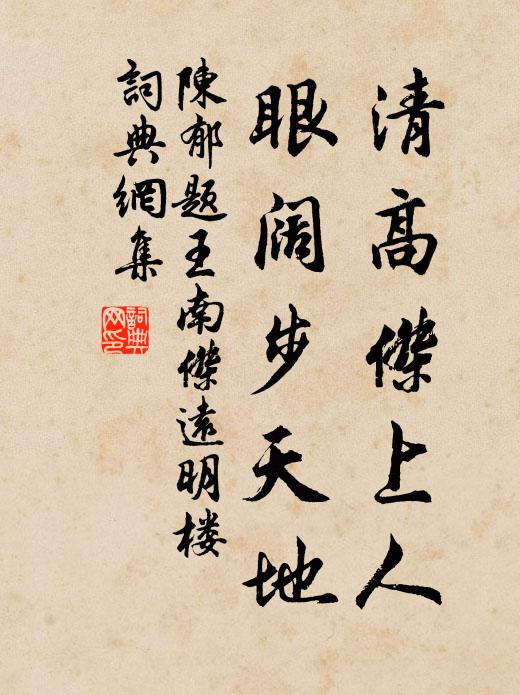 清高傑上人
眼阔步天地
陳郁题王南傑遠明楼
詞典網集
詞典
网印